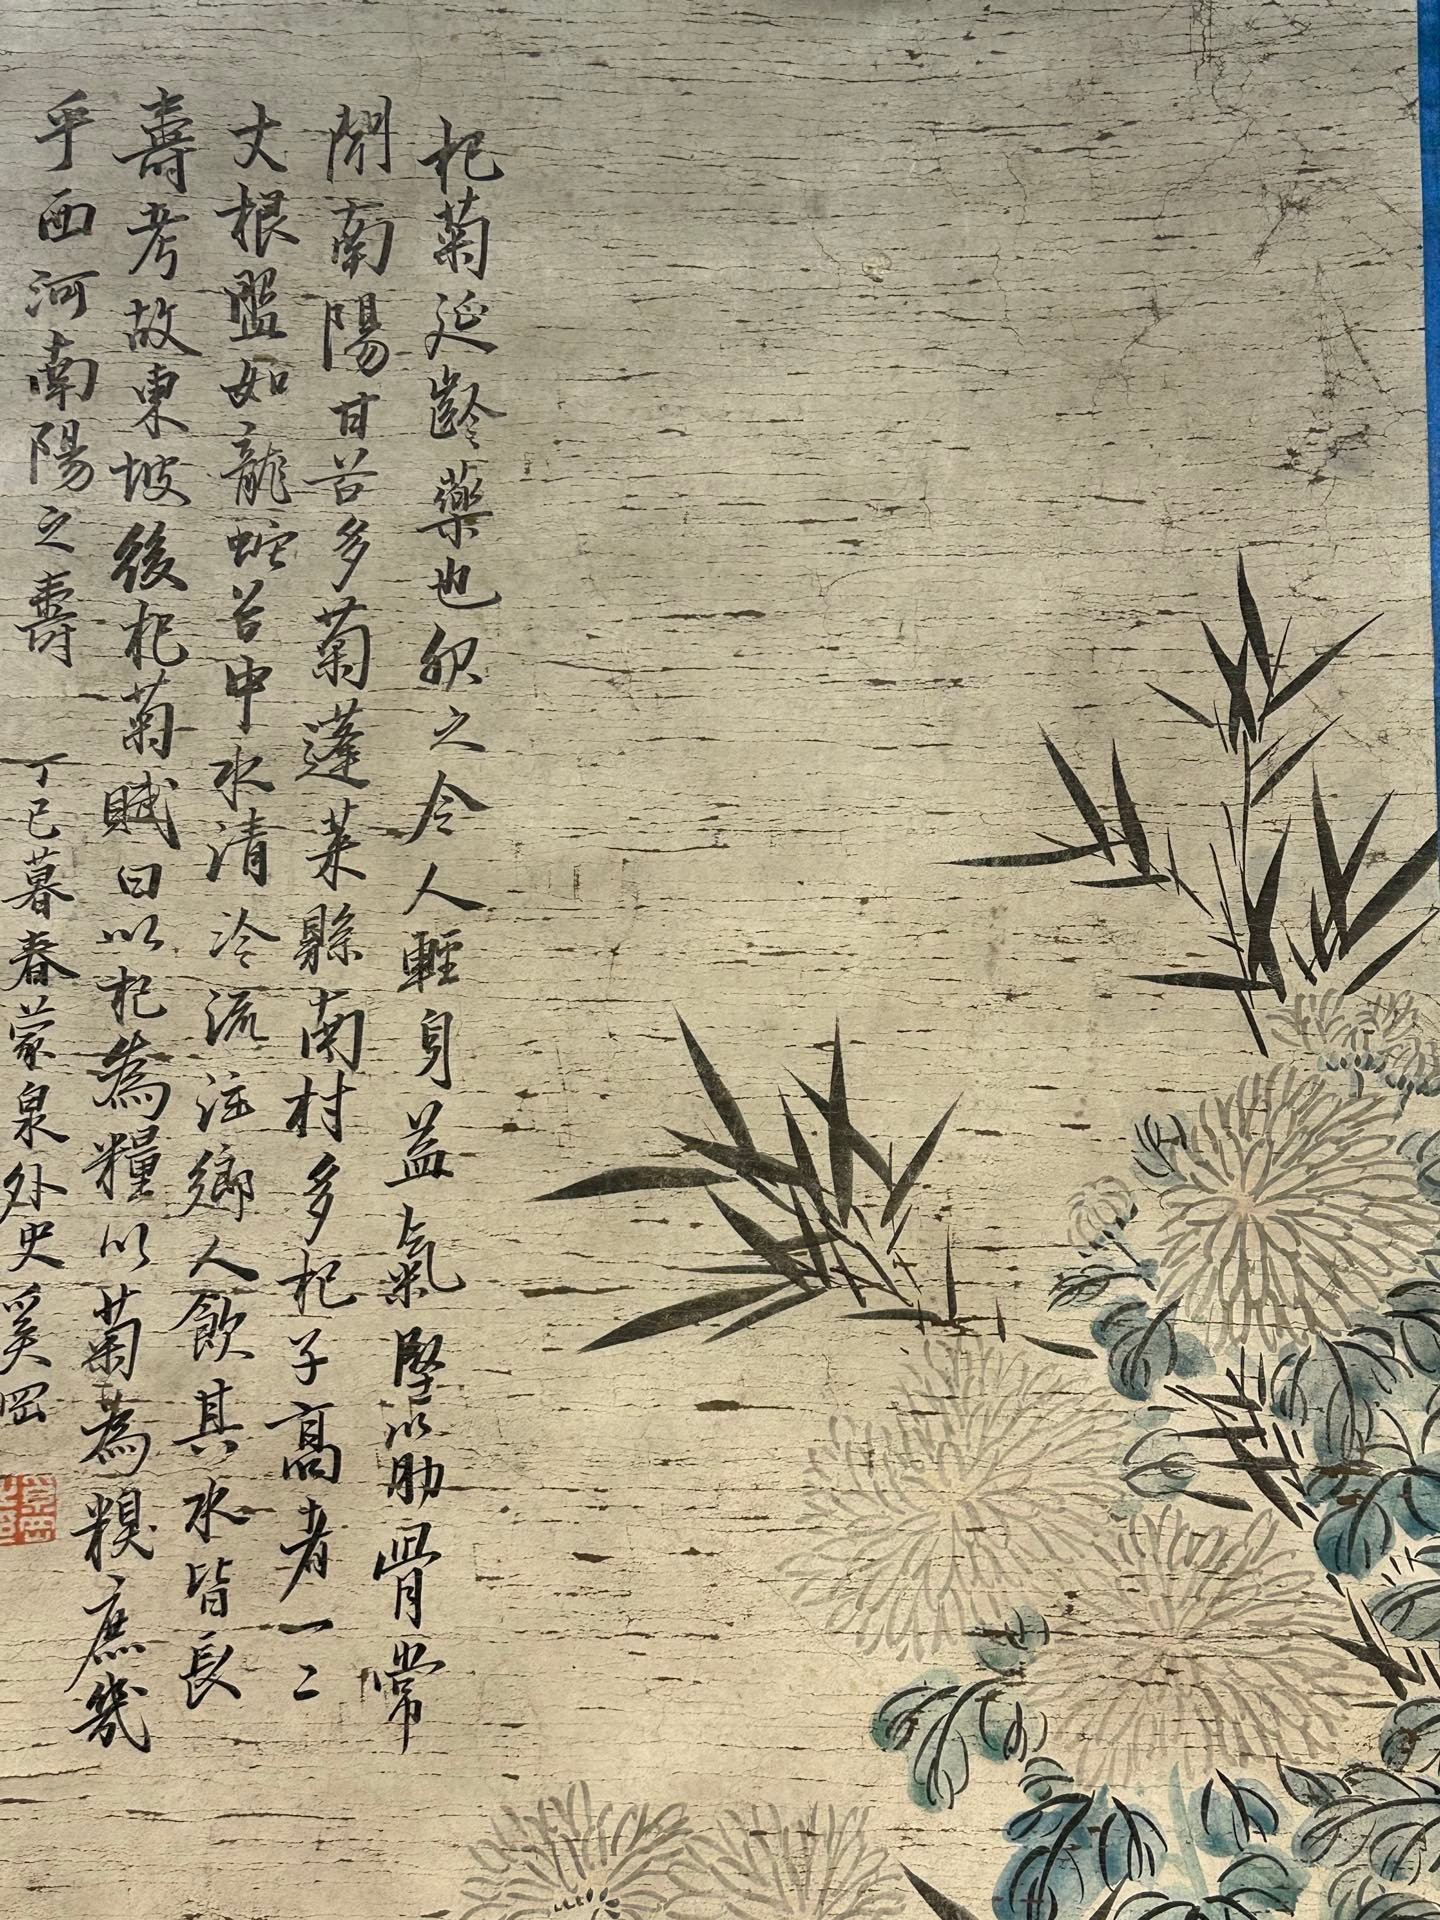 杞菊延齡藥也服之令人輕身益氣堅以筋骨常
聞南陽甘谷多菊蓬萊縣南村多杞子高者一二
丈根盤如龍蛇谷中水清冷流注鄉人飲其水皆長
壽考故東坡後杞菊賦曰以杞為糧以菊為糗庶幾
乎西河南陽之壽
丁巳暮春蒙泉外史奚岡